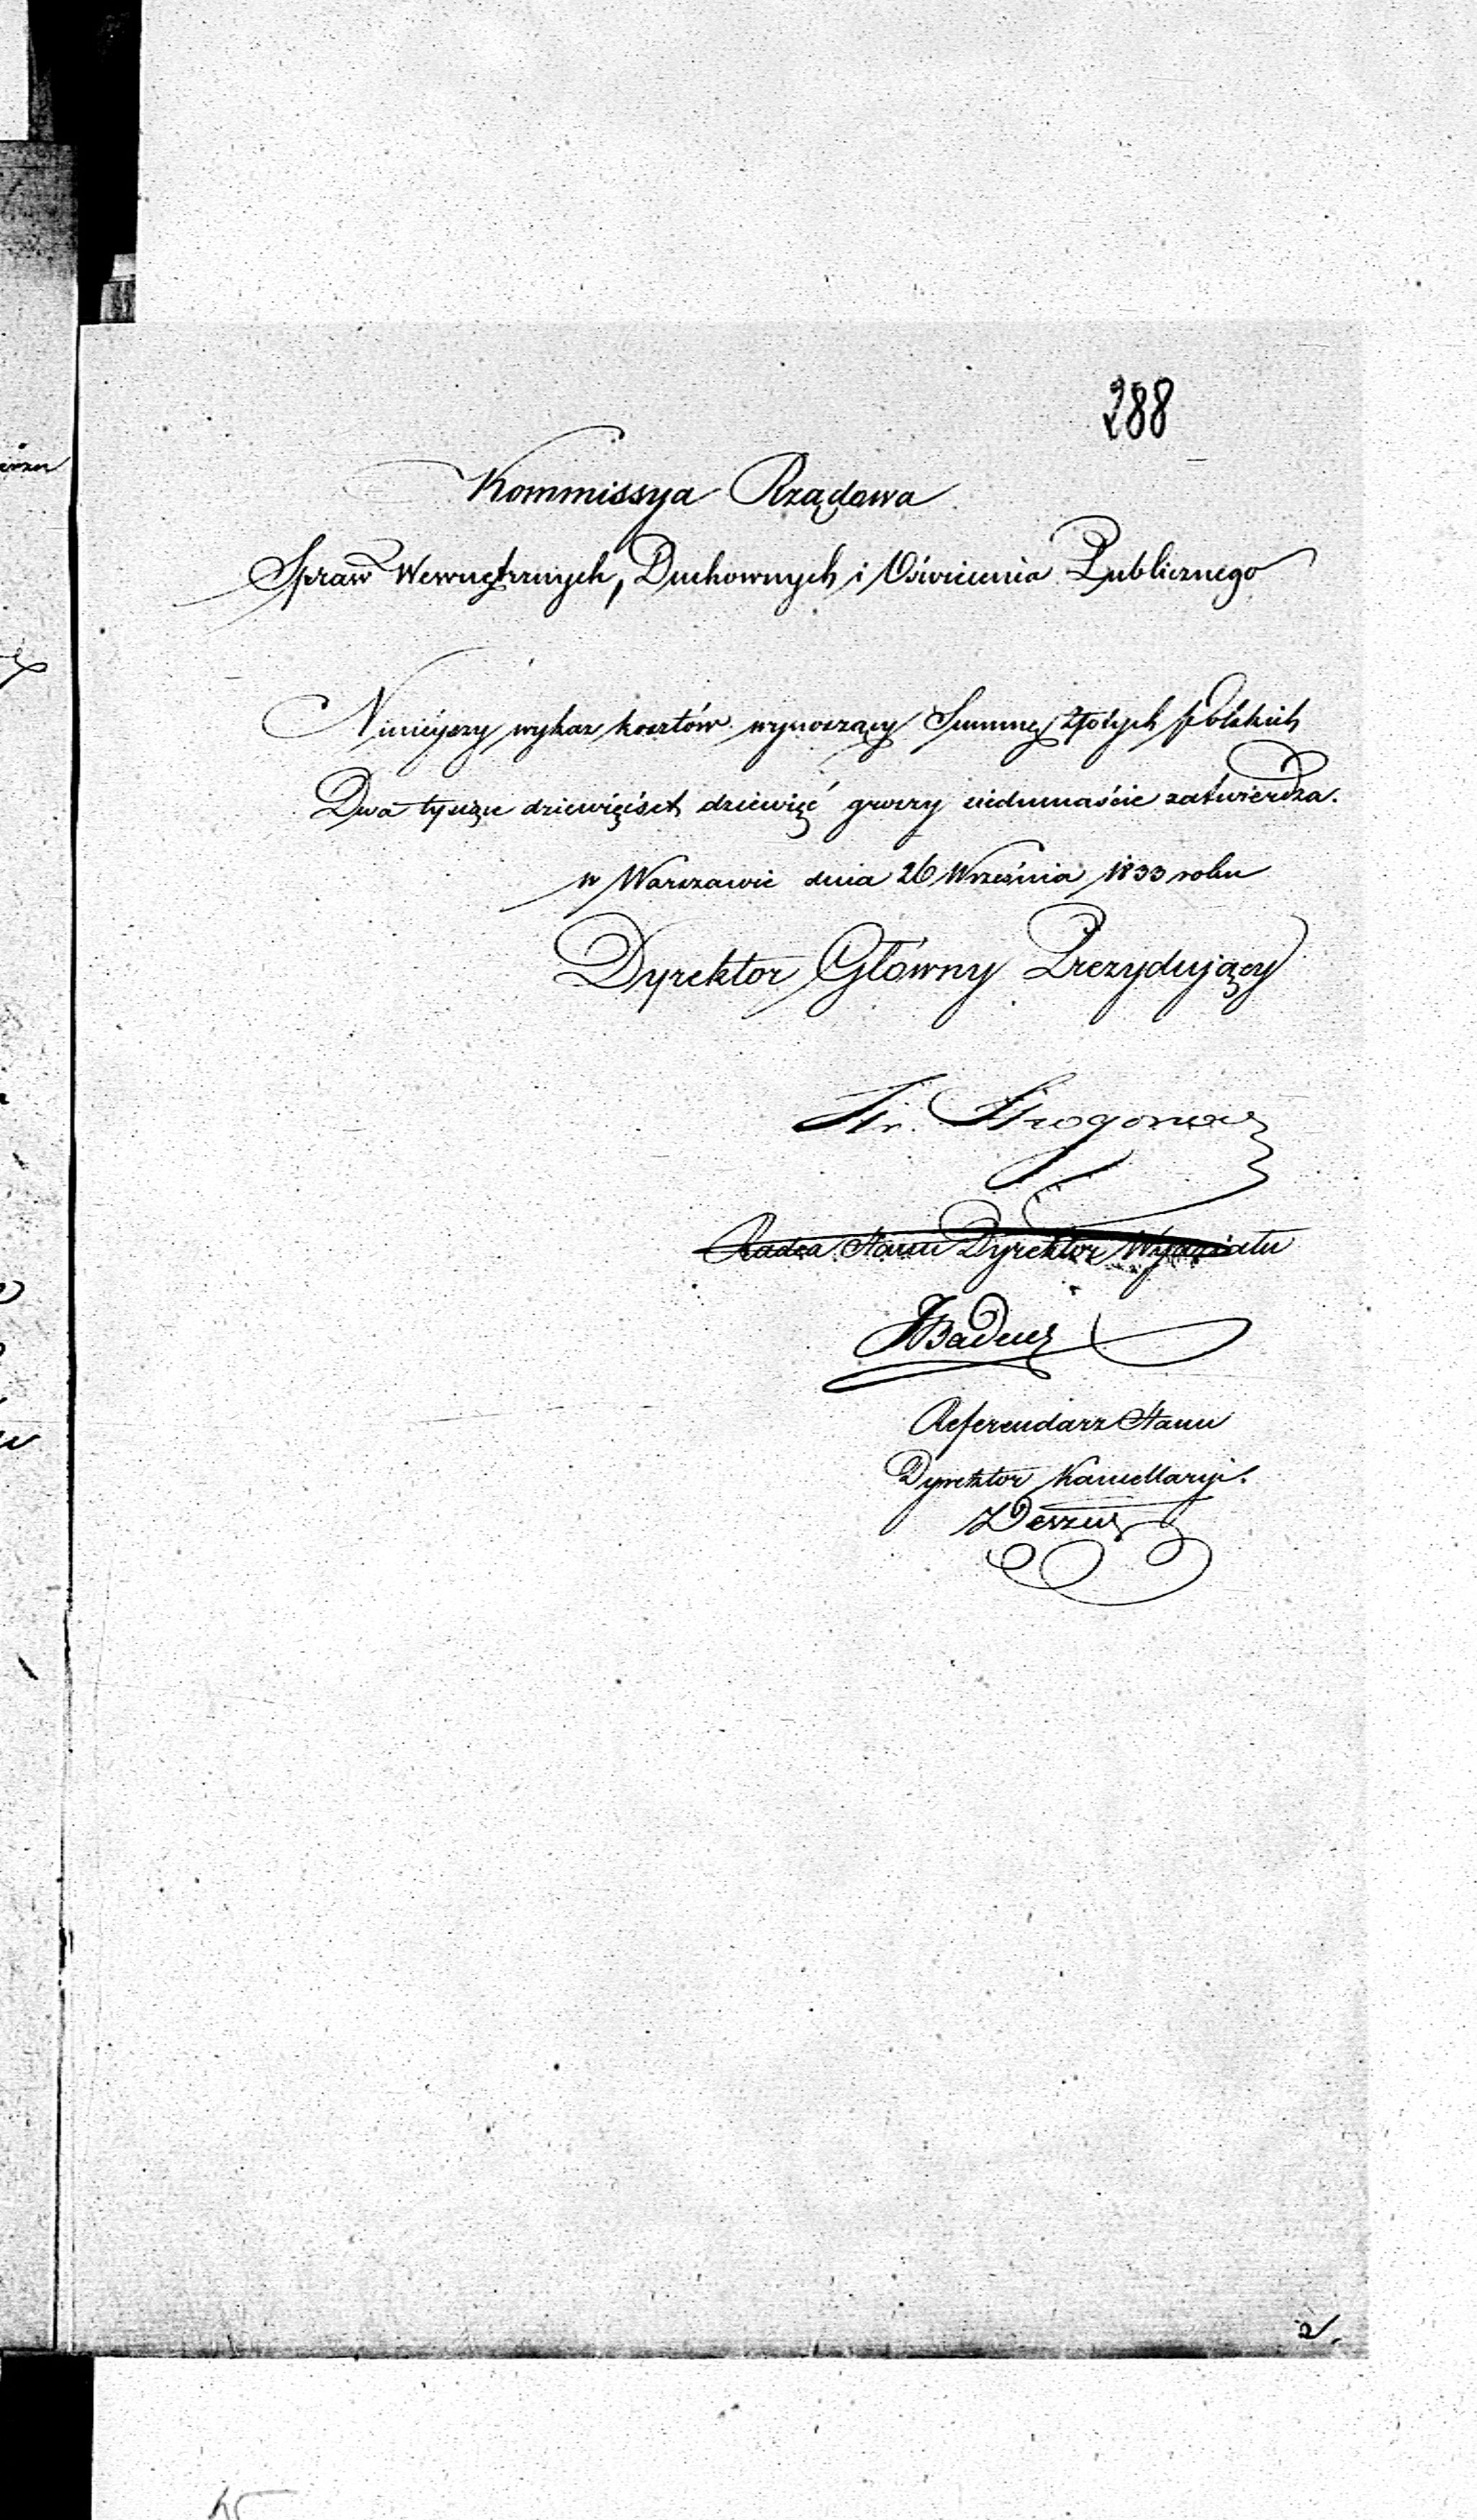 288
Kommissya Rządowa
Spraw Wewnętrznych, Duchownych i Oświecenia Publicznego
Ninieyszy wykaz kosztów wynoszący Summę złotych polskich
Dwa tysiące dziewięćset dziewięć groszy siedmnaście zatwierdza.
w Warszawie dnia 26 Września 1833 roku
Dyrektor Główny Prezydujący
Str. Strogonow
Radca Stanu Dyrektor Wydziału
JBadeni
Referendarz Stanu
Dyrektor Kancellaryi.
2.